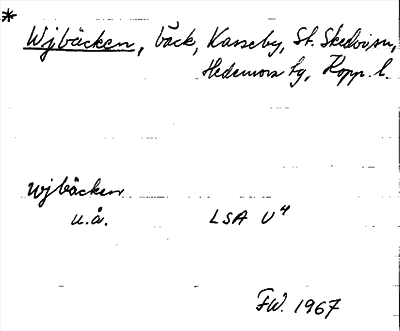 *
Wjbäcken, bäck, Karseby, St. Skedvi sn,
Hedemora tg, Kopp. l.
Wjbäcken
u.å. LSA U4
F.W. 1967